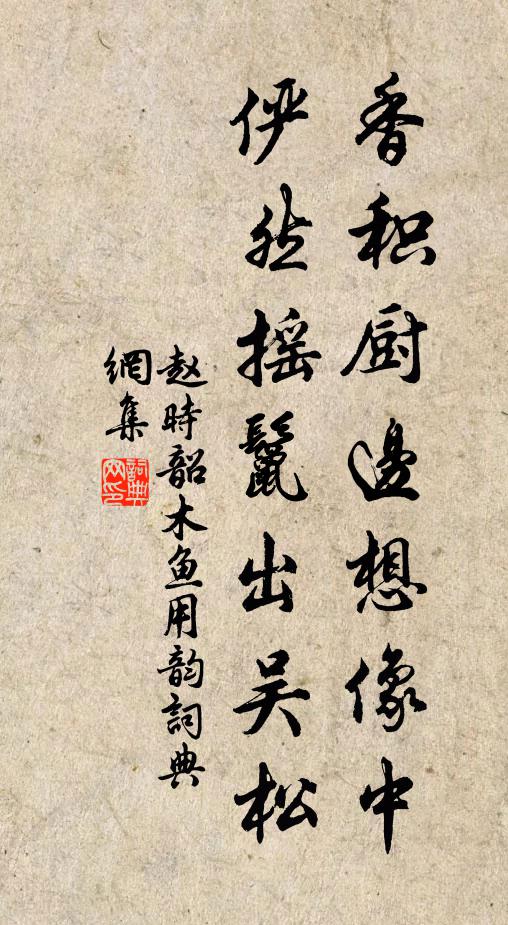 香积厨边想像中
俨然摇鬣出吴松
赵时韶木鱼用韵词典
網集
詞典
网印